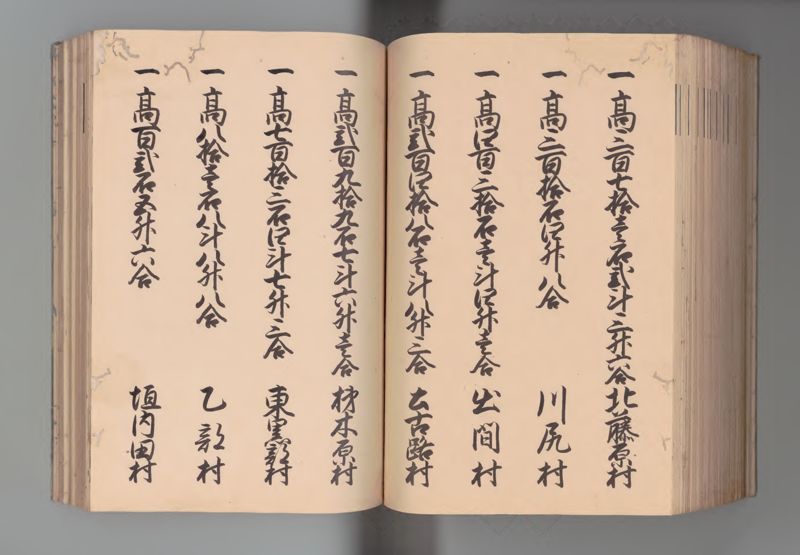 一 高三百七拾壱石弐斗三升六合 北藤原村
一 高三百拾石四升八合 川尻村
一 高四百三拾石壱斗四升壱合 出間村
一 高弐百四拾八石壱斗八升三合 大古路村
一 高弐百九拾九石七斗六升壱合 柿木原村
一 高七百拾三石四斗七升三合 東黒部村
一 高八拾壱石八斗八升八合 乙部村
一 高百弐石五升六合 垣内田村